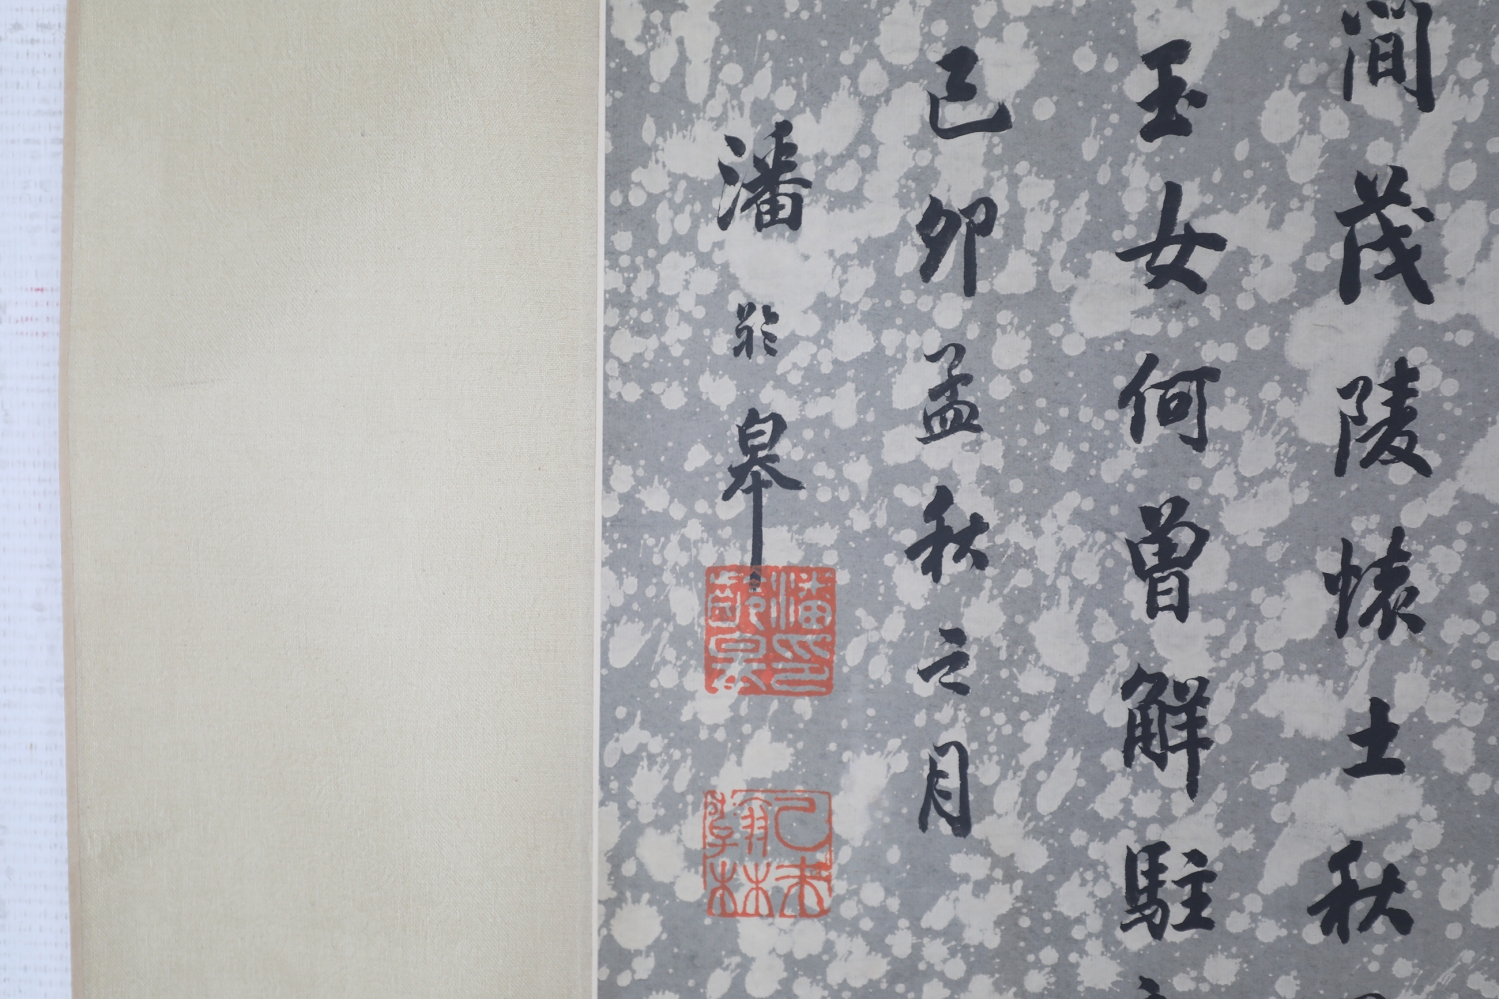 澗茂陵懷土秋
玉女何曾解駐
己卯孟秋之月
潘齡皋
潘印齡皋
乙未翰林